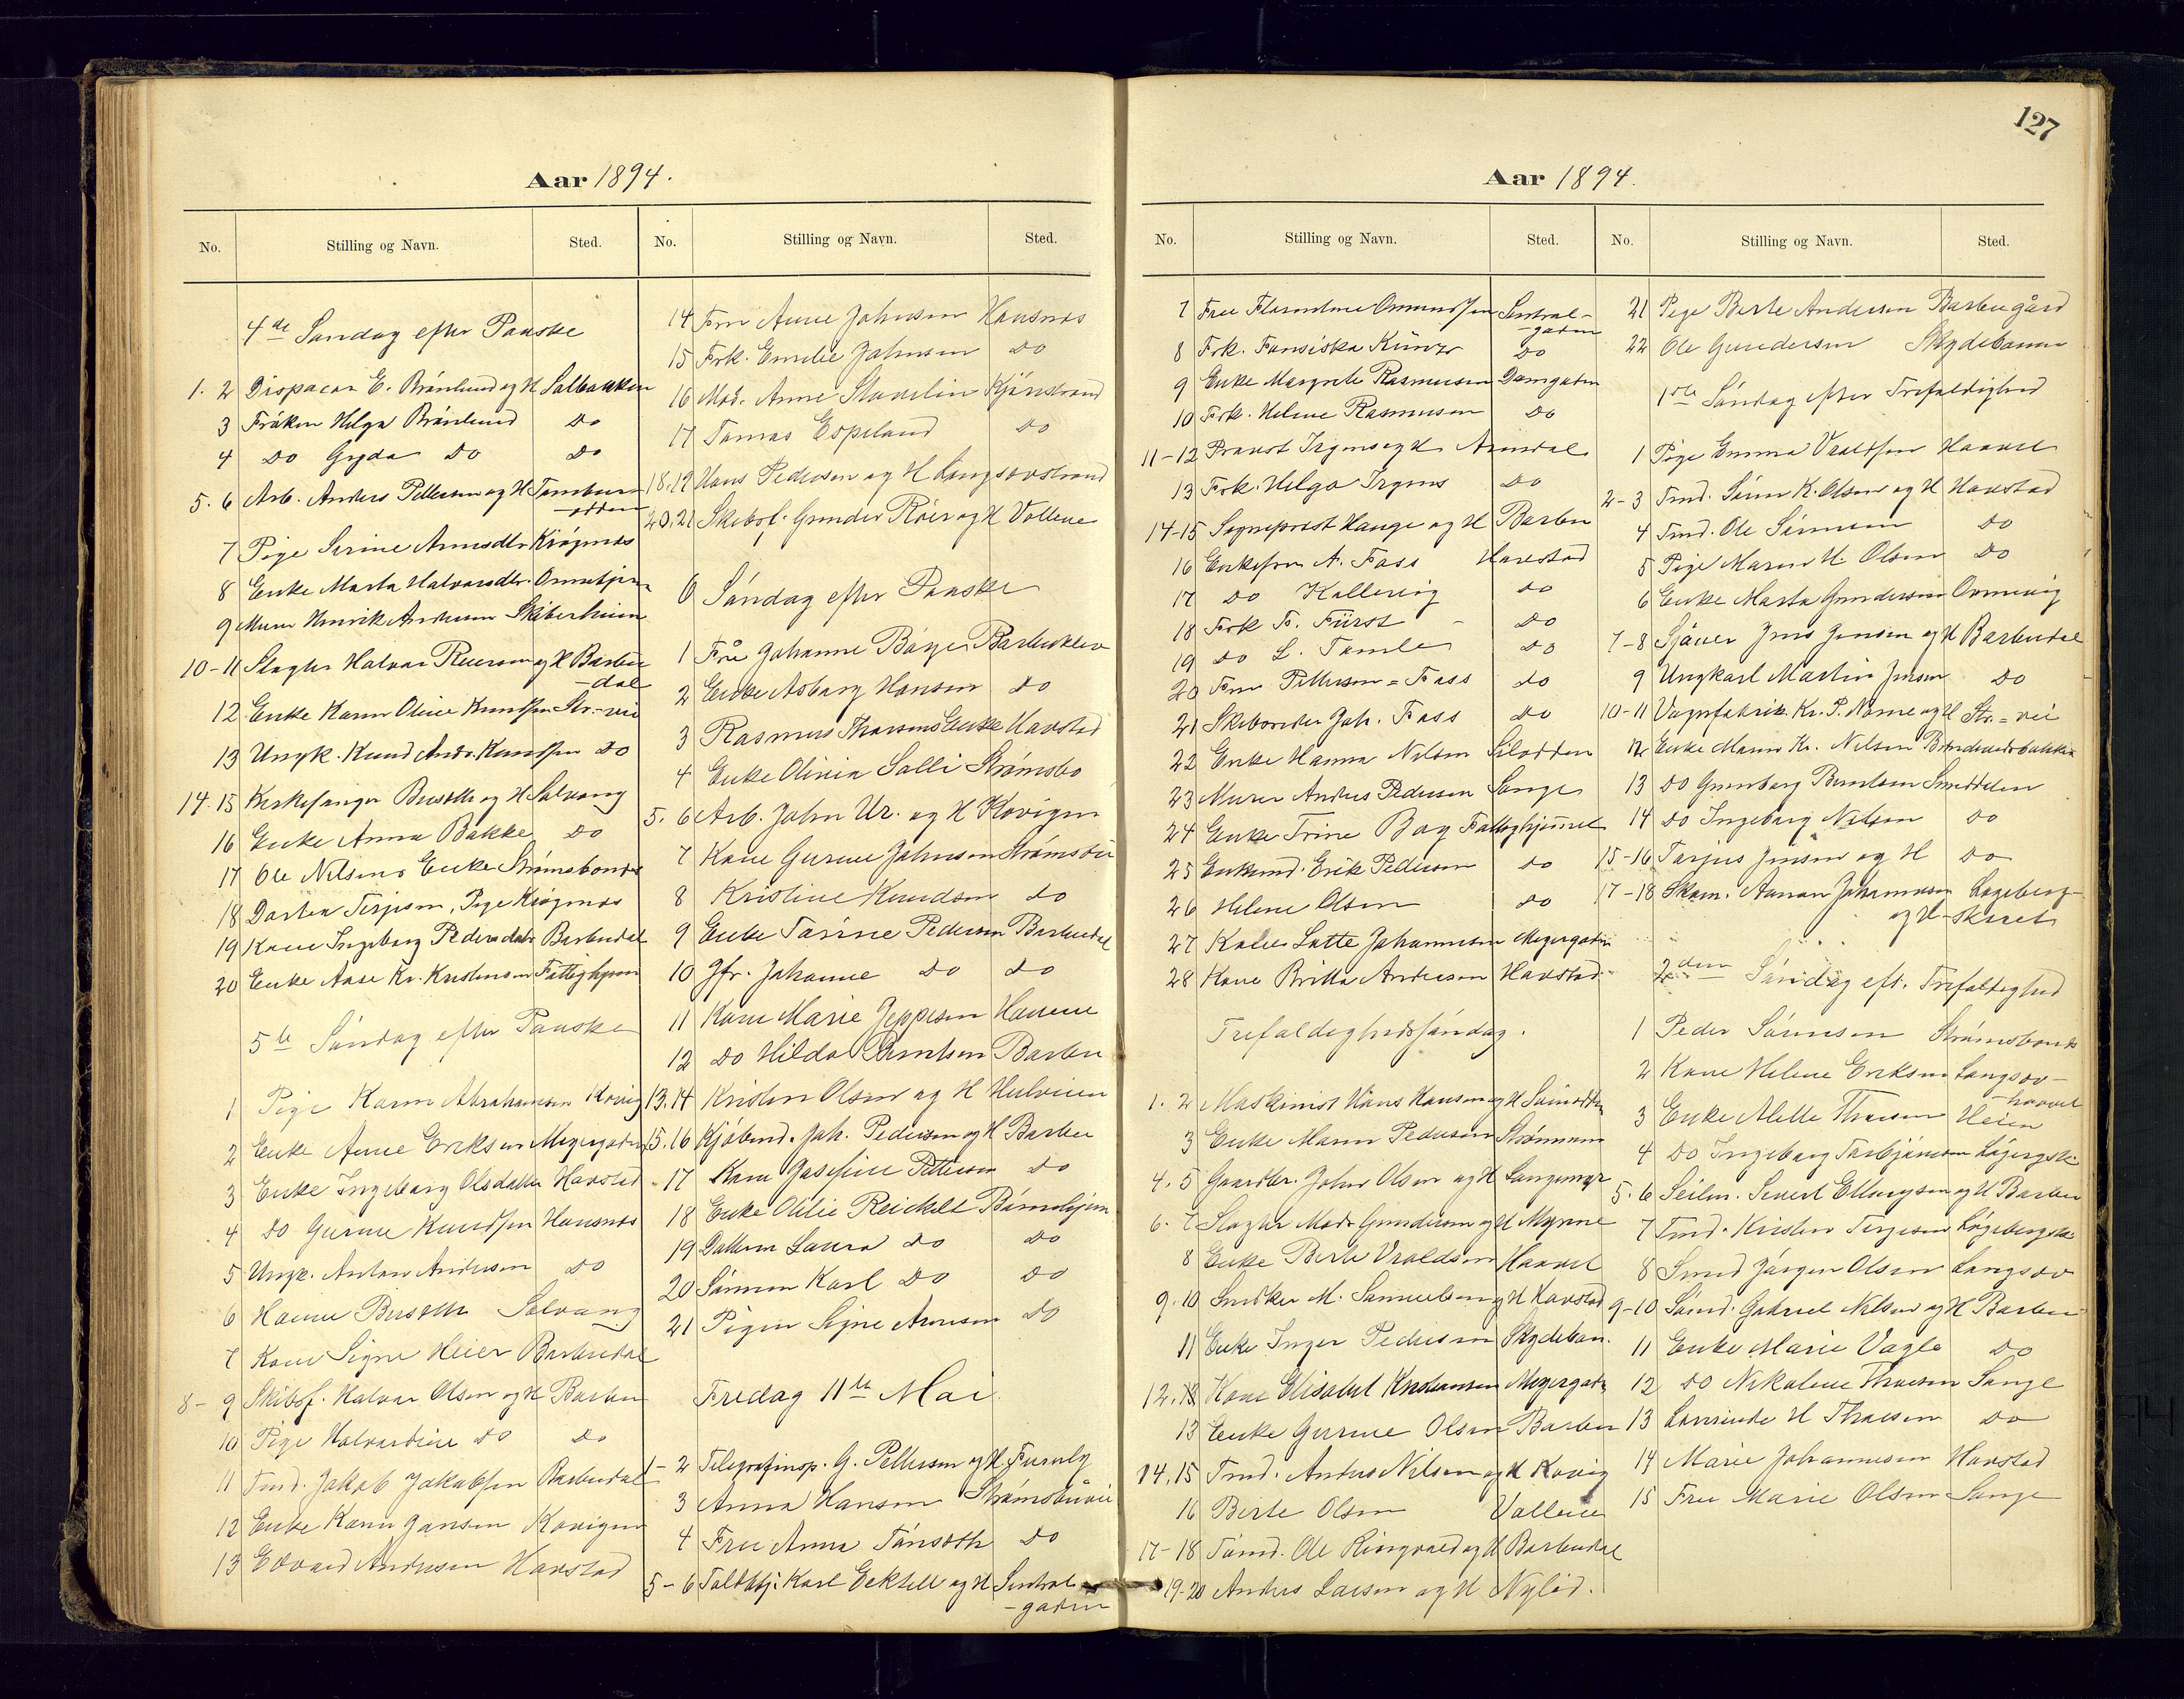 127
Aar 1894.
No. Stilling og Navn. Sted.
4de Søndag efter Paaske
1. 2 Dispacør E. Brønlund og H Solbakken
3 Frøken Helga Brønlund Do
4 Do Gyda Do Do
5. 6 Arb. Anders Pettersen og H Tambur-
-odden
7 Pige Serine Arnesdtr Krøgenæs
8 Enke Marta Halvorsdtr.
9 Murer Henrik Andersen
10-11 Slagter Halvor Reiersen og H Barbu
-dal
12 Enke Karen Oline Knudsen Str.-vei
13 Ungk. Knud Andr. Knudsen Do
14. 15 Kirkesanger Buseth og H Solvang
16 Enke Anna Bakke Do
17 Ole Nilsens Enke Strømsbonde
18 Dortea Terjesen, Pige Krøgenæs
19 Kone Ingeborg Pedersdatr Barbudal
20 Enke Aase Kr. Kristensen Fattighjem
5te Søndag efter Paaske
1 Pige Karen Abrahamsen Kovig
2 Enke Anne Eriksen Meyergaden
3 Enke Ingeborg Olsdatter Havstad
4 Do Gurine Knudsen Hausnæs
5 Ungk. Anton Andersen Do
6 Hanne Buseth Solvang
7 Kone Signe Heier Barbudal
8-9 Skibsf. Halvor Olsen og H Barbu
10 Pige Halvardine Do Do
11 Tmd. Jakob Jakobsen Barbudal
12 Enke Karen Jansen Kovigen
13 Edvard Andersen Havstad
No. Stilling og Navn. Sted.
14 Fru Anne Johnsen Hausnæs
15 Frk. Emilie Johnsen Do
16 Mad. Anne Stavelin Kjønstrand
17 Tomas Espeland Do
18. 19 Hans Pedersen og H Langsævstrand
20. 21 Skibsf. Gunder Røer og H Vollene
6 Søndag efter Paaske
1 Fru Johanne Børge Barbuklev
2 Enke Asborg Hansen Do
3 Rasmus Thorsens Enke Havstad
4 Enke Olivia Salli Strømsbo
5. 6 Arb. John Ur. og H Kovigen
7 Kone Gurine Johnsen
8 Kristine Knudsen Do
9 Enke Tasine Pedersen Barbudal
10 Jfr. Johanne Do Do
11 Kone Marie Jeppesen
12 Do Hilda Berntsen Barbu
13. 14 Kristen Olsen og H
15. 16 Kjøbmd. Joh. Pedersen og H Barbu
17 Kone Josefine Petersen Do
18 Enke Otilie Reickelt Børnehjem
19 Datteren Laura Do Do
20 Sønnen Karl Do Do
21 Pigen Signe Arnesen Do
Fredag 11te Mai
1-2 Telegrafinsp. G. Pettersen og H Furuly
3 Anna Hansen Strømsbuvei
4 Fru Anna Tønseth Do
5-6 Toldbtj. Karl Ecktell og H Sentral-
-gaden
Aar 1894.
No. Stilling og Navn. Sted.
7 Fru Florentine Omundsen Sentral-
-gaden
8 Frk. Fansiska Do
9 Enke Margrete Rasmussen Damgaden
10 Frk. Helene Rasmussen Do
11-12 Provst Irgens og H Arendal
13 Frk. Helga Irgens Do
14-15 Sogneprest Hauge og H Barbu
16 Enkefru A. Foss Havstad
17 Do Kallevig Do
18 Frk F. Fürst Do
19 Do L. Do
20 Fru Pettersen=Foss Do
21 Skibsreder Joh. Foss Do
22 Enke Hanna Nilsen Silodden
23 Murer Anders Pedersen Songe
24 Enke Trine Boy Fattighjemmet
25 Enkemd. Erik Pedersen Do
26 Helene Olsen Do
27 Lotte Johannesen Meyergaden
28 Kone Britta Andersen Havstad
Trefoldighedssøndag.
1. 2 Maskinist Hans Hansen og H
3 Enke Maren Pedersen
4. 5 Gaardbr. John Olsen og H
6. 7 Slagter Mads Gundersen og H Myrene
8 Enke Berte Vraldsen Haavet
9. 10 Snedker M. Samuelsen og H Havstad
11 Enke Inger Pedersen Skydeban.
12. Kone Elisabet Kristiansen Meyergaden
13 Enke Gurine Olsen Barbu
14. 15 Tmd. Anders Nilsen og H Kovig
16 Berte Olsen Vollene
17-18 Tømd. Ole Ringvold og H Barbudal
19-20 Anders Larsen og H Nylød.
No. Stilling og Navn. Sted.
21 Pige Berte Andersen Barbugård
22 Ole Gundersen Skydebanen
1ste Søndag efter Trefoldighed
1 Pige Emma Vraldsen Haavet
2-3 Tmd. Søren K. Olsen og H Havstad
4 Tmd. Ole Sørensen Do
5 Pige Maren H. Olsen Do
6 Enke Marta Gundersen
7-8 Sjauer Jens Jensen og H Barbudal
9 Ungkarl Martin Jensen Do
10-11 Vognfabrik. Kr. P. Norne og H Str.=vei
12 Enke Maren Kr. Nilsen
13 Do Gunnborg Berntsen
14 Do Ingeborg Nilsen Do
15-16 Tarjus Jensen og H Do
17-18 Skom. Aanon Johannesen Løgeberg-
og H -skaret
2den Søndag eft. Trefoldighed
1 Peder Sørensen Strømsbonde
2 Kone Helene Eriksen Langsæv-
-haavet
3 Enke Alette Thorsen Heien
4 Do Ingeborg Torbjørnsen
5. 6 Seilm. Sivert Ellingsen og H Barbu
7 Tmd. Kristen Terjesen
8 Smed Jørgen Olsen Langsæv
9-10 Sømd. Gabriel Nilsen og H Barbu
11 Enke Marie Vagle Do
12 Do Nikoline Thorsen Songe
13 H Thorsen Do
14 Marie Johannesen Havstad
15 Fru Marie Olsen Songe